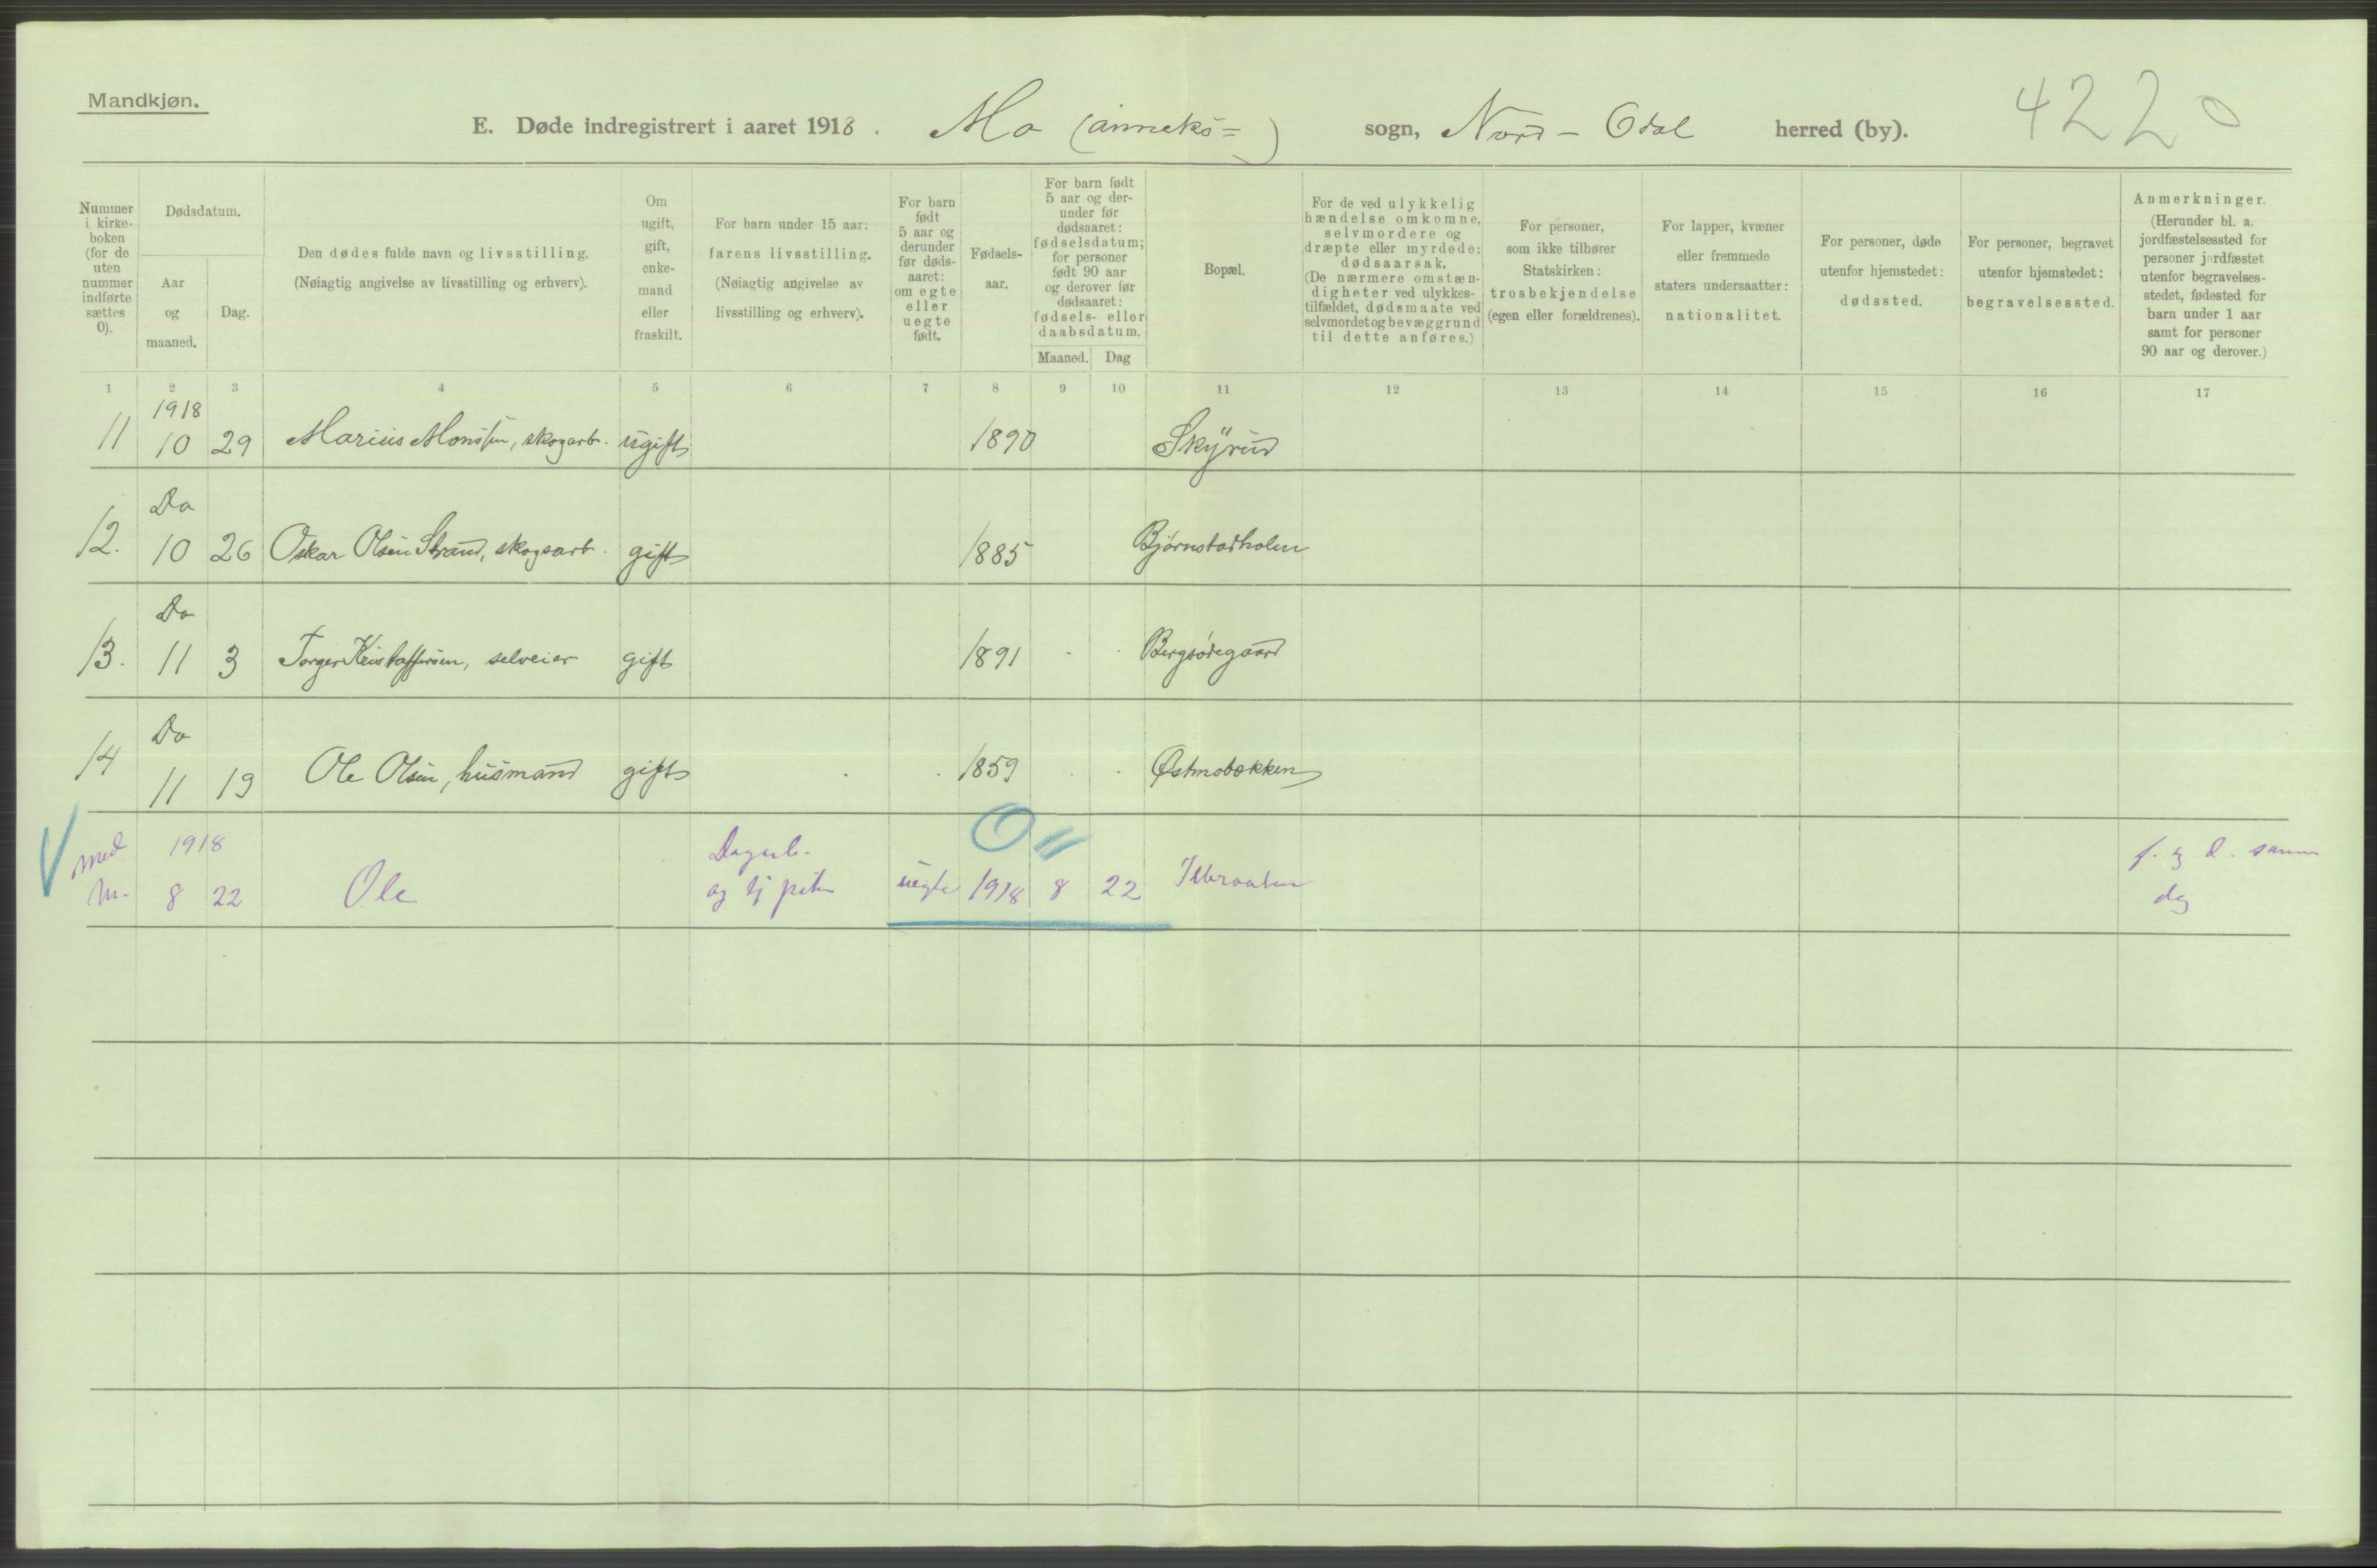 Mandkjøn.
E. Døde indregistrert i aaret 1918. Mo (anneks=) sogn, Nord-Odal herred (by). 4220
Nummer i kirke-boken (for de uten nummer indførte sættes 0).
Dødsdatum.
Aar og maaned.
Dag.
Den dødes fulde navn og livsstilling.
(Nøiagtig angivelse av livsstilling og erhverv).
Om ugift, gift, enke-mand eller fraskilt.
For barn under 15 aar: farens livsstilling.
(Nøiagtig angivelse av livsstilling og erhverv).
For barn født 5 aar og derunder før døds-aaret: om egte eller uegte født.
Fødsels-aar.
For barn født 5 aar og der-under før dødsaaret: fødselsdatum; for personer født 90 aar og derover før dødsaaret: fødsels- eller daabsdatum.
Maaned. Dag
Bopæl.
For de ved ulykkelig hændelse omkomne, selvmordere og dræpte eller myrdede: dødsaarsak.
(De nærmere omstæn-digheter ved ulykkes-tilfældet, dødsmaate ved selvmordet og bevæggrund til dette anføres.)
For personer, som ikke tilhører Statskirken: trosbekjendelse (egen eller forældrenes).
For lapper, kvæner eller fremmede staters undersaatter: nationalitet.
For personer, døde utenfor hjemstedet: dødssted.
For personer, begravet utenfor hjemstedet: begravelsessted.
Anmerkninger.
(Herunder bl. a. jordfæstelsessted for personer jordfæstet utenfor begravelses-stedet, fødested for barn under 1 aar samt for personer 90 aar og derover.)
1 2 3 4 5 6 7 8 9 10 11 12 13 14 15 16 17
1918
11 10 29 Marius Monssen, skogarb. ugift 1890 Skyrud
Do
12. 10 26 Oskar Olsen Strand, skogsarb. gift 1885 Bjørnstadholen
Do
13. 11 3 Torger Kristoffersen, selveier gift 1891 Bergsødegaard
Do
14 11 19 Ole Olsen, husmand gift 1859 Østmobækken
med 1918 Dagarb. f. og d. samme
m. 8 22 Ole og uegte 1918 8 22 dag